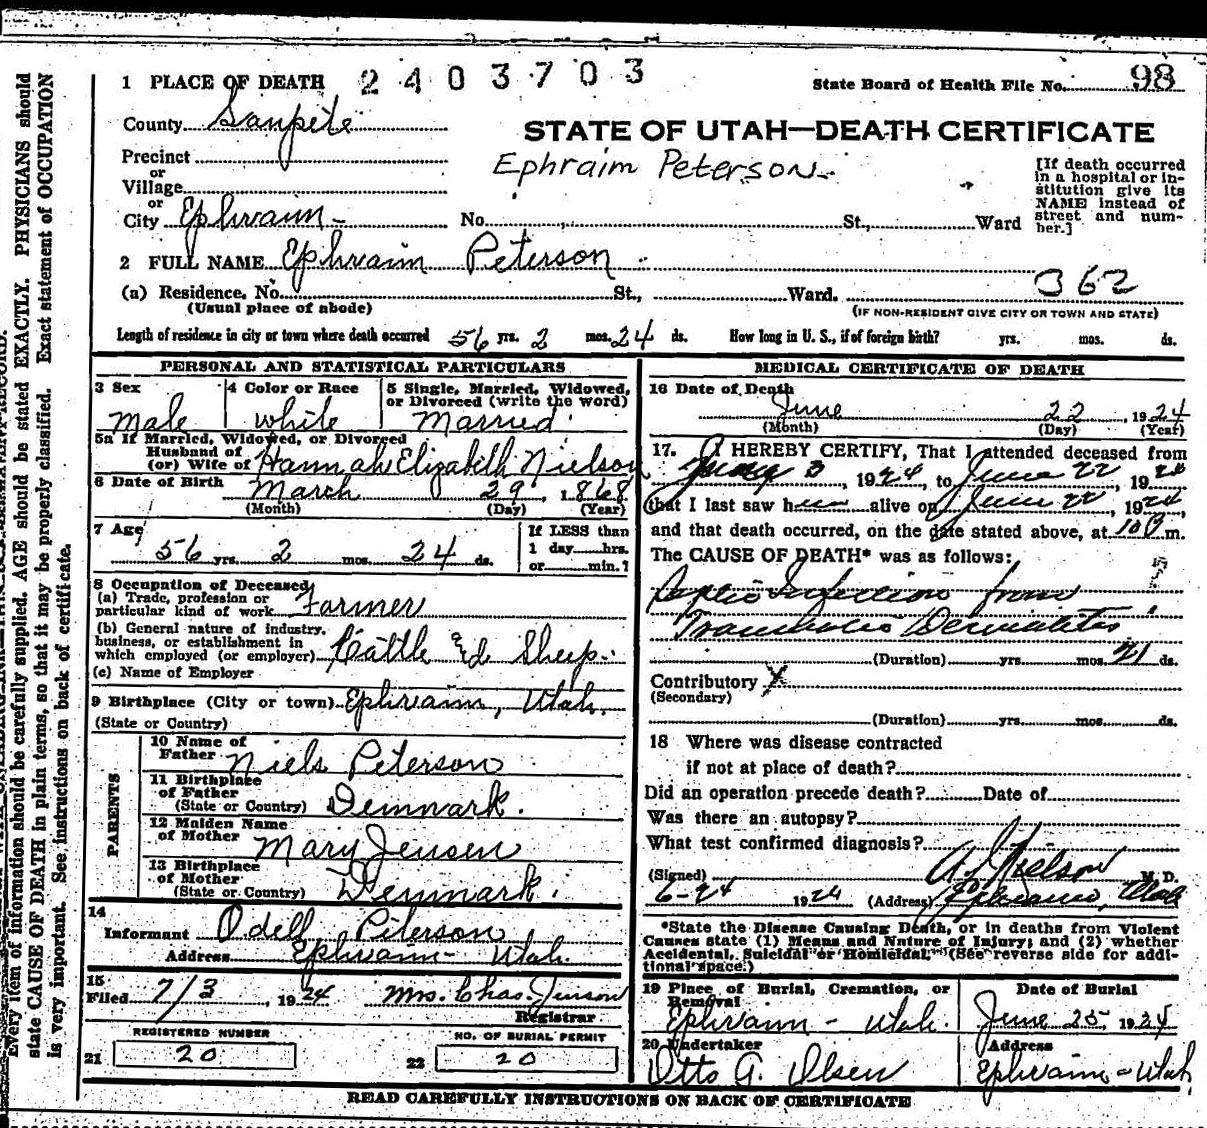 1 PLACE OF DEATH 2403703 State Board of Health File No. 98
County Sanpete
STATE OF UTAH—DEATH CERTIFICATE
Precinct
or
Village
or
City Ephraim -
Ephraim Peterson.
No. St., Ward
[If death occurred
in a hospital or in-
stitution give its
NAME instead of
street and num-
ber.]
2 FULL NAME Ephraim Peterson
362
(a) Residence. No. St., Ward.
(Usual place of abode) (IF NON-RESIDENT GIVE CITY OR TOWN AND STATE)
Length of residence in city or town where death occurred 56 yrs. 2 mos. 24 ds. How long in U. S., if of foreign birth? yrs. mos. ds.
PERSONAL AND STATISTICAL PARTICULARS
3 Sex 4 Color or Race 5 Single, Married, Widowed,
or Divorced (write the word)
Male white Married
5a If Married, Widowed, or Divorced
Husband of
(or) Wife of Hannah Elizabeth Nielson
6 Date of Birth March 29, 1868
(Month) (Day) (Year)
7 Age 56 yrs. 2 mos. 24 ds.
If LESS than
1 day hrs.
or min.?
8 Occupation of Deceased
(a) Trade, profession or
particular kind of work Farmer
(b) General nature of industry,
business, or establishment in
which employed (or employer) Cattle & Sheep.
(c) Name of Employer
9 Birthplace (City or town) Ephraim, Utah.
(State or Country)
PARENTS
10 Name of
Father Niels Peterson
11 Birthplace
of Father
(State or Country) Denmark.
12 Maiden Name
of Mother Mary Jensen
13 Birthplace
of Mother
(State or Country) Denmark.
14
Informant Odell Peterson
Address Ephraim - Utah.
15
Filed 7/3, 1924 Mrs. Chas. Jenson
Registrar
REGISTERED NUMBER
21 20
NO. OF BURIAL PERMIT
22 20
MEDICAL CERTIFICATE OF DEATH
16 Date of Death
June 22, 1924
(Month) (Day) (Year)
17. I HEREBY CERTIFY, That I attended deceased from
3, 1924, to June 22, 1924
that I last saw h alive on June 22, 1924,
and that death occurred, on the date stated above, at 10 m.
The CAUSE OF DEATH* was as follows:
Septic Infection from
Traumatic Dermatitis
(Duration) yrs. mos. 21 ds.
Contributory X
(Secondary)
(Duration) yrs. mos. ds.
18 Where was disease contracted
if not at place of death?
Did an operation precede death? Date of
Was there an autopsy?
What test confirmed diagnosis?
(Signed) Nielson M. D.
6-24 1924 (Address) Ephraim, Utah
*State the Disease Causing Death, or in deaths from Violent
Causes state (1) Means and Nature of Injury; and (2) whether
Accidental, Suicidal or Homicidal. (See reverse side for addi-
tional space.)
19 Place of Burial, Cremation, or
Removal
Ephraim - Utah.
Date of Burial
June 25 1924
20 Undertaker
Otto A. Olsen
Address
Ephraim - Utah
READ CAREFULLY INSTRUCTIONS ON BACK OF CERTIFICATE
Every item of information should be carefully supplied. AGE should be stated EXACTLY. PHYSICIANS should
state CAUSE OF DEATH in plain terms, so that it may be properly classified. Exact statement of OCCUPATION
is very important. See instructions on back of certificate.